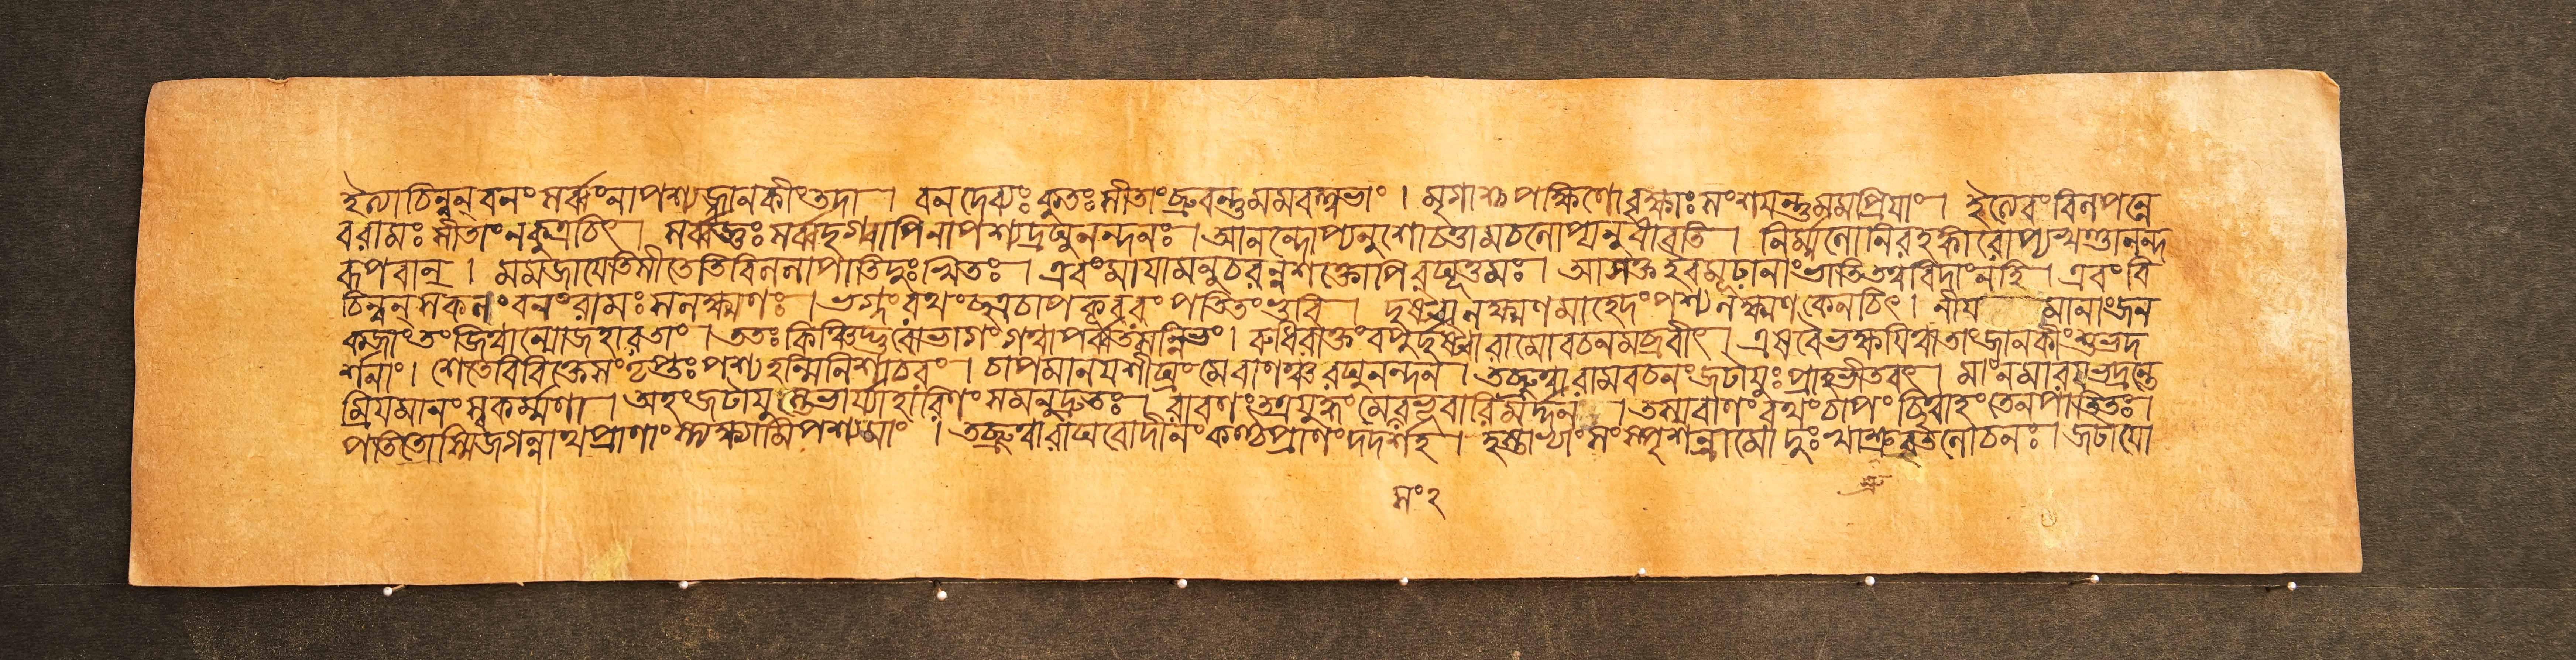 ইত্যাচিন্বন্ বনং সর্ব্বং নাপশ্যজ্জানকীং তদা । বনদেব্যঃ কুতঃ সীতাং ব্রুবন্তু মম বল্লভাং । মৃগাশ্চ পক্ষিণো বৃক্ষাঃ সংশয়ন্তু মম প্রিয়াং । ইত্যেবং বিলপন্নে
বরামঃ সীতাং ন কুত্রচিৎ । সর্ব্বজ্ঞঃ সর্ব্বদৃগ্বাপি নাপশ্যদ্রঘুনন্দনঃ । আনন্দোপ্যনুশোচত্তামচলোপ্যনুধাবতি । নির্ম্মমো নিরহঙ্কারোপ্যখণ্ডানন্দ
রূপবান্ । মম জায়েতি সীতেতি বিললাপাতিদুঃখিতঃ । এবং মায়ামনুচরন্নশক্তোপি রঘূত্তমঃ । আসক্ত ইব মূঢ়ানাং ভাতি তত্ত্ববিদাং নহি । এবং বি
চিন্বন্ সকলং বনং রামঃ সলক্ষ্মণঃ । ভগ্নং রথং ছত্রচাপকূবরং পতিতং ভুবি । দৃষ্ট্বা লক্ষ্মণমাহেদং পশ্য লক্ষ্মণ কেনচিৎ । নীয় মানাং জন
কজাং তং জিত্বান্যো জহার তাং । ততঃ কিঞ্চিদ্ভুবো ভাগং গত্বা পর্ব্বতসন্নিভং । রুধিরাক্তং বপুর্দৃষ্ট্বা রামো বচনমব্রবীৎ । এষ বৈ ভক্ষয়িত্বা তাং জানকীং শুভদ
র্শনাং । শেতে বিবিক্তে সংতৃপ্তঃ পশ্য হন্মি নিশাচরং । চাপমানয় শীঘ্রং মে বাণঞ্চ রঘুনন্দন । তচ্ছ্রুত্বা রামবচনং জটায়ুঃ প্রাহ ভীতবৎ । মাং ন মারয় ভদ্রন্তে
ম্রিয়মানং স্বকর্ম্মণা । অহং জটায়ুস্তে ভার্য্যাহারিণং সমনুদ্রুতঃ । রাবণং তত্র যুদ্ধং মে বভূবারিমর্দ্দন । তস্য বাণং রথং চাপং ছিত্বাহং তেন পাতিতঃ ।
পতিতোস্মি জগন্নাথ প্রাণাংস্ত্যক্ষ্যামি পশ্য মাং । তচ্ছ্রুত্বা রাঘবো দীনং কণ্ঠপ্রাণং দদর্শ হ । হস্তাভ্যাং সংস্পৃশন্রামো দুঃখাশ্রুবৃতলোচনঃ । জটায়ো
সং ২